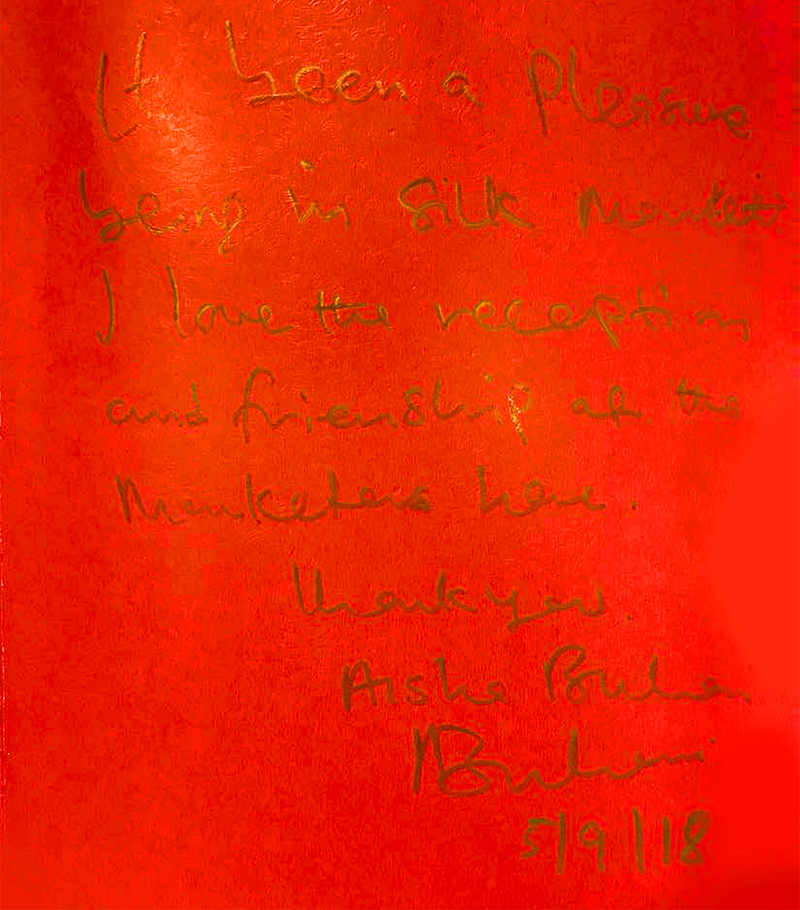 It been a pleasure
being in Silk Market
I love the reception
and friendship of the
Marketers here.
Thank you.
Aisha Buhari
ABuhari
5/9/18